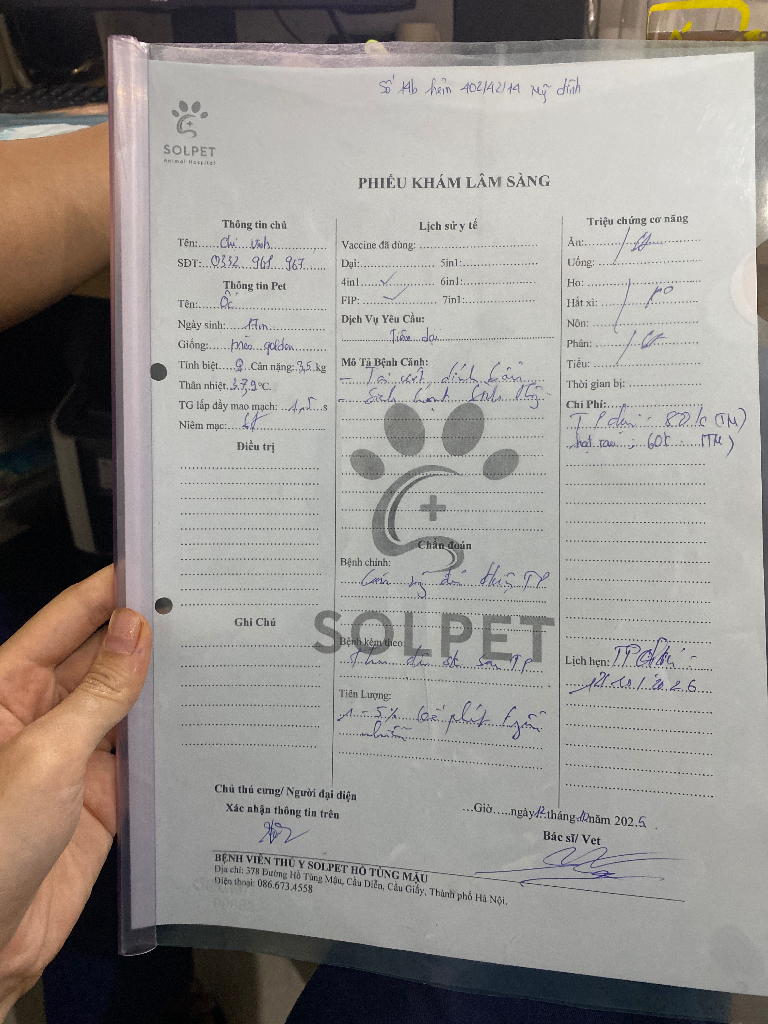 Số 14b hẻm 402/42/14 Mỹ đình
SOLPET
Animal Hospital
PHIẾU KHÁM LÂM SÀNG
Thông tin chủ
Tên: Chi
SĐT: 0332 968 967
Thông tin Pet
Tên: Ốc
Ngày sinh: 17m
Giống: mèo golden
Tính biệt ♀ Cân nặng: 3,5 kg
Thân nhiệt 37,9 °C.
TG lấp đầy mao mạch: 1,5 s
Niêm mạc:
Điều trị
Ghi Chú
Lịch sử y tế
Vaccine đã dùng:
Dại: 5in1:
4in1 ✓ 6in1:
FIP: ✓ 7in1:
Dịch Vụ Yêu Cầu:
Tiêm dại
Mô Tả Bệnh Cảnh:
SOLPET
Chẩn đoán
Bệnh chính:
TP
Bệnh kèm theo:
TP
Tiên Lượng:
1 - 5%
Triệu chứng cơ năng
Ăn:
Uống:
Ho:
Hắt xì:
Nôn:
Phân:
Tiểu:
Thời gian bị:
Chi Phí:
TP dại: 80k (TM)
60k (TM)
Lịch hẹn: TP dại:
12/10/2026
Chủ thú cưng/ Người đại diện
Xác nhận thông tin trên
...Giờ.....ngày 12 tháng 10 năm 2025
Bác sĩ/ Vet
BỆNH VIỆN THÚ Y SOLPET HỒ TÙNG MẬU
Địa chỉ: 378 Đường Hồ Tùng Mậu, Cầu Diễn, Cầu Giấy, Thành phố Hà Nội.
Điện thoại: 086.673.4558